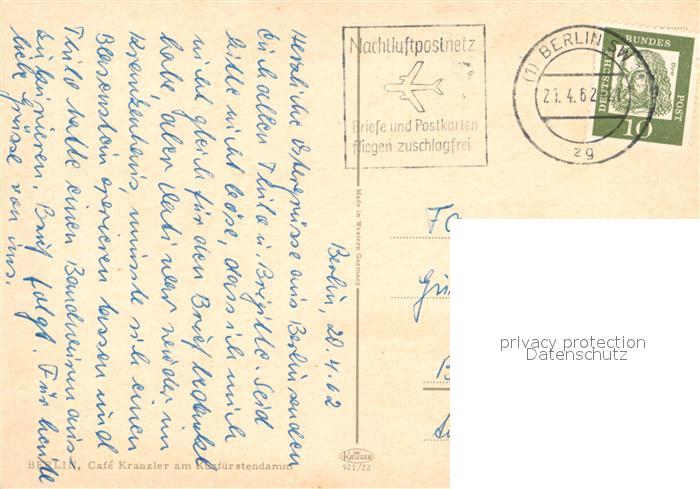 Nachtluftpostnetz
Briefe und Postkarten
fliegen zuschlagfrei
(1) BERLIN SW
21.4.62
zg
DEUTSCHE BUNDESPOST
10
Berlin, 20.4.62
Herzliche Ostergrüsse aus Berlin senden
Euch allen Thilo u. Brigitte. Seid
bitte nicht böse, dass ich mich
nicht gleich für den Brief bedankt
habe, aber Vati war wieder im
Krankenhaus, musste sich einen
Blasenstein operieren lassen und
Thilo hatte einen Bandwurm aus-
zukurieren. Brief folgt. Für heute
liebe Grüsse von uns.
Made in Western Germany
KRÜGER
921/22
BERLIN, Café Kranzler am Kurfürstendamm
privacy protection
Datenschutz